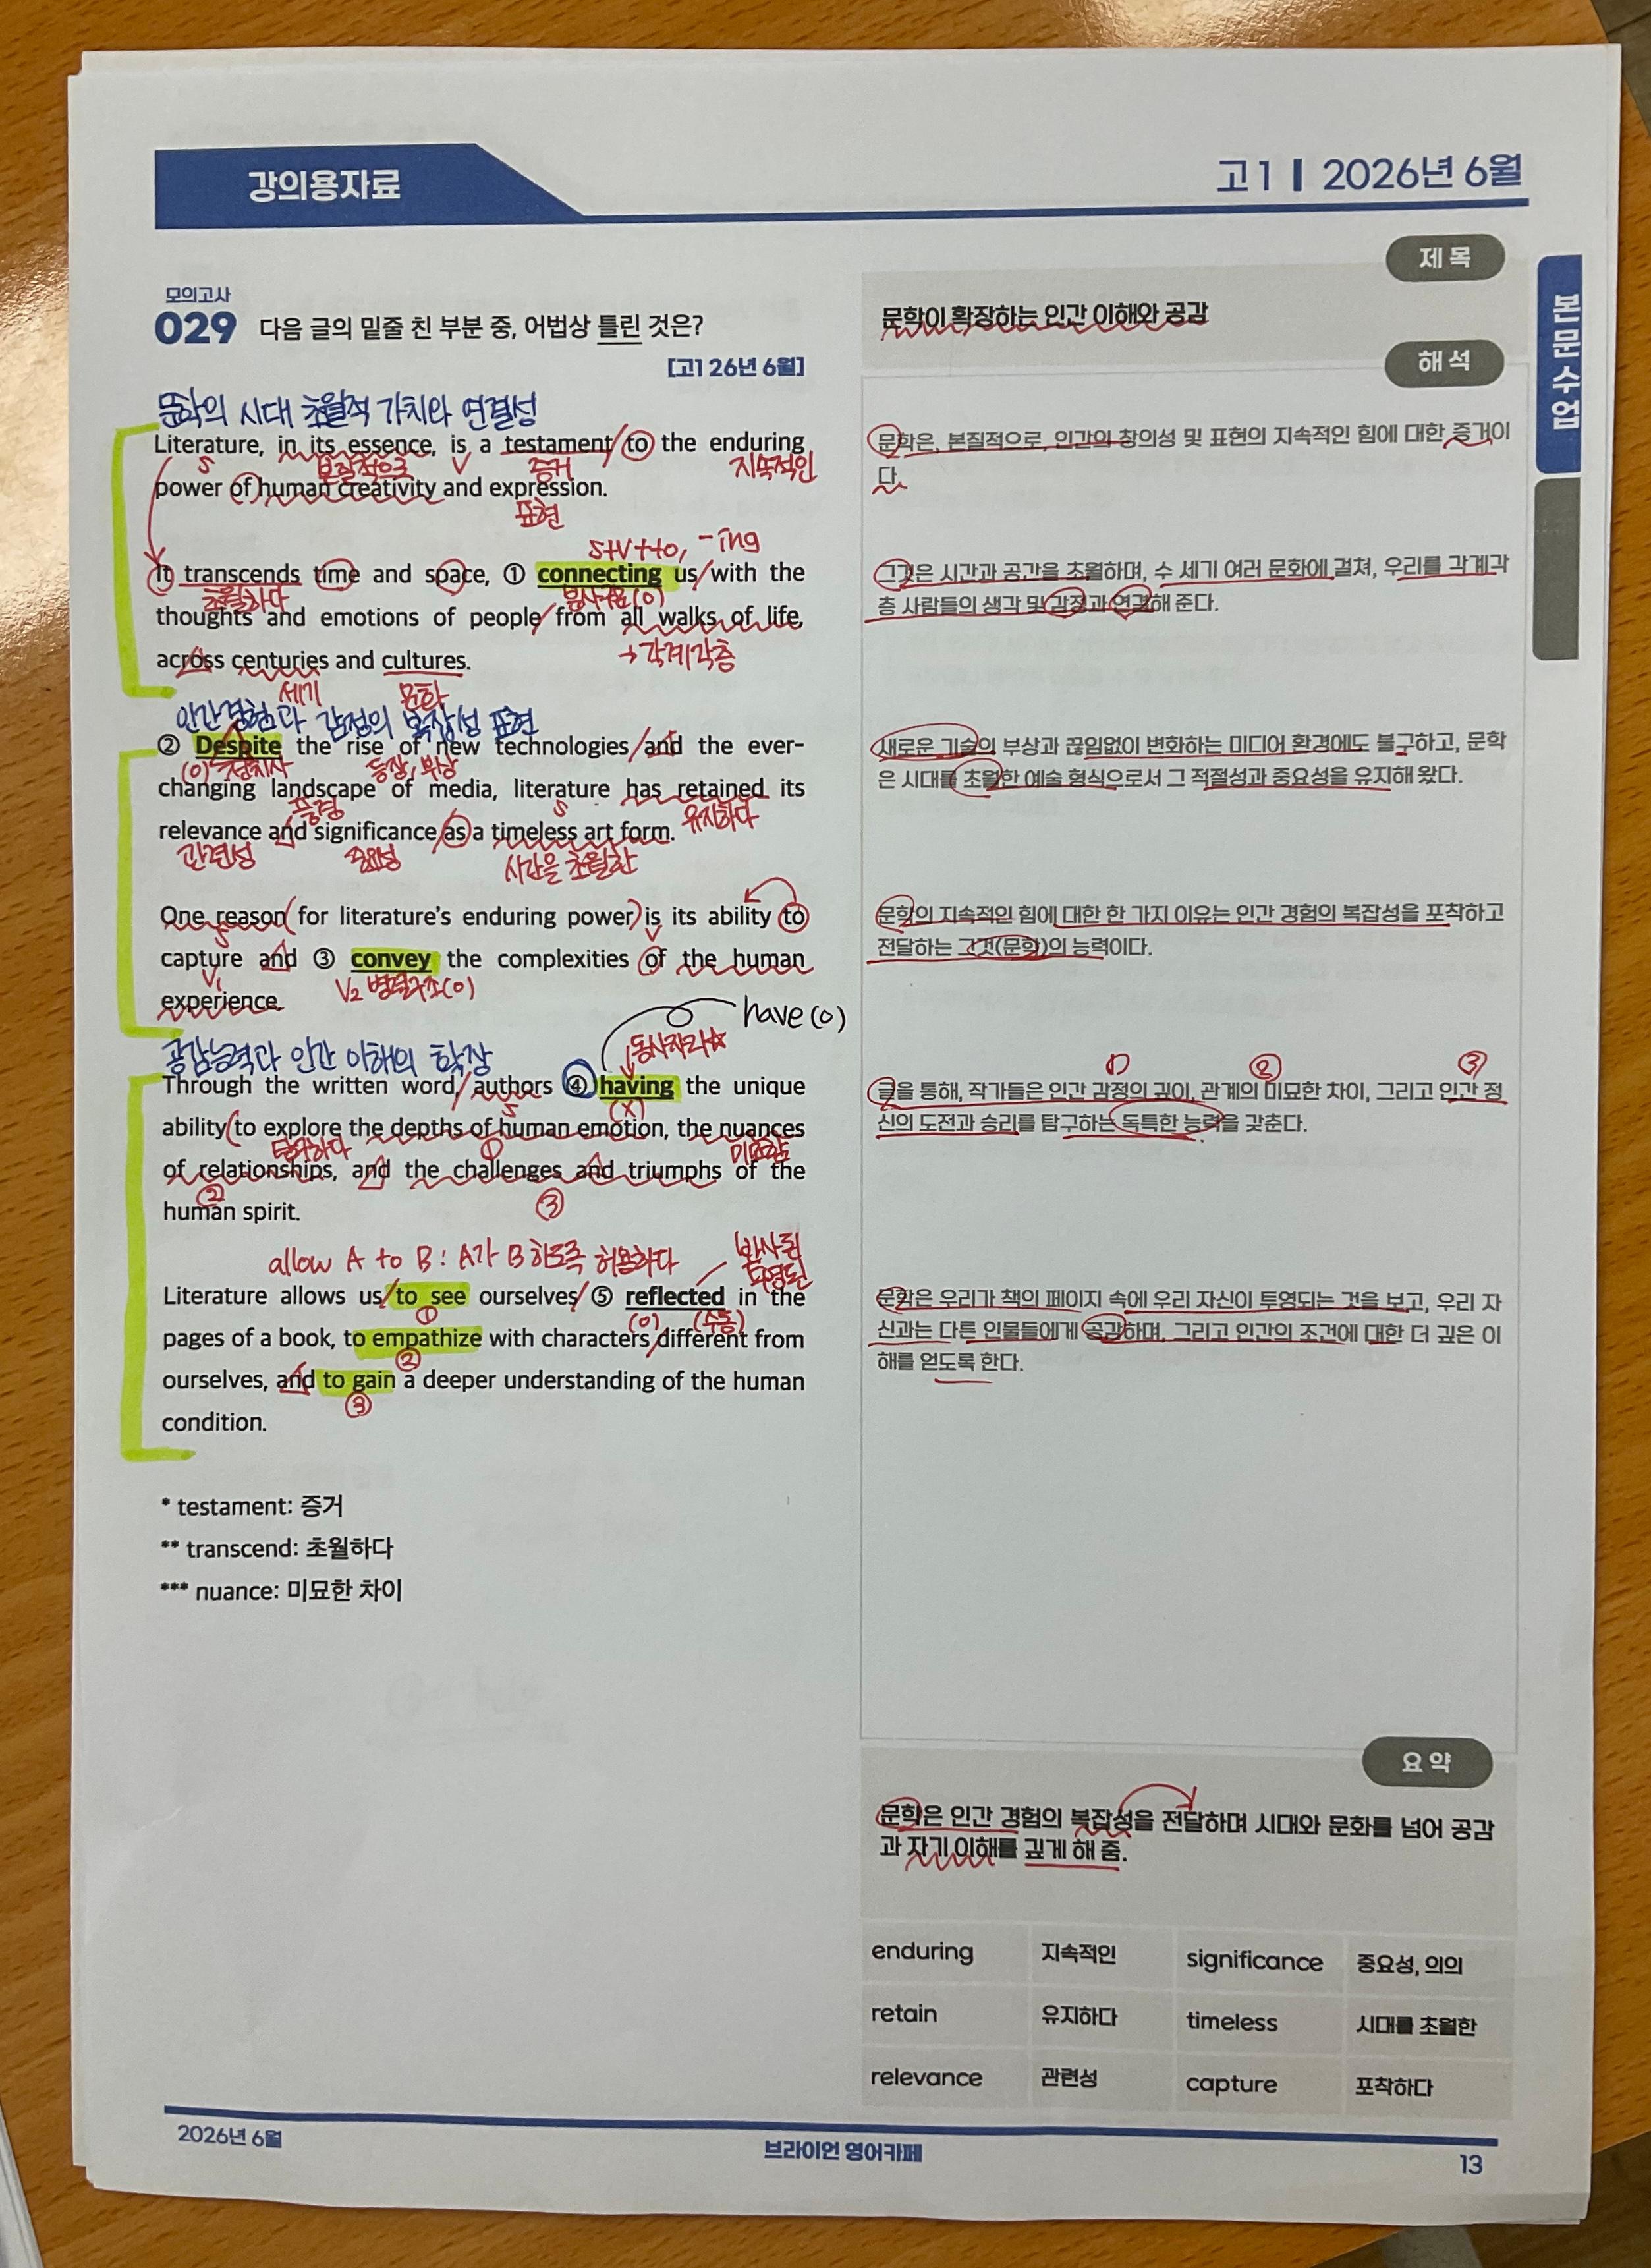 강의용자료
고1 | 2026년 6월
본문수업
모의고사
029 다음 글의 밑줄 친 부분 중, 어법상 틀린 것은?
[고1 26년 6월]
문학의 시대 초월적 가치와 연결성
Literature, in its essence, is a testament/to the enduring
s 본질적으로 v 증거 지속적인
power of human creativity and expression.
표현
s+v+to, -ing
It transcends time and space, ① connecting us/with the
초월하다 분사구문(o)
thoughts and emotions of people/from all walks of life,
→각계각층
across centuries and cultures.
세기 문화
인간경험과 감정의 복잡성 표현
② Despite the rise of new technologies/and the ever-
(o) 전치사 등장, 부상
changing landscape of media, literature has retained its
풍경 s 유지하다
relevance and significance/as a timeless art form.
관련성 중요성 시간을 초월한
One reason(for literature's enduring power)is its ability to
s v
capture and ③ convey the complexities of the human
V₁ V₂ 병렬구조(o)
experience.
have(o)
공감능력과 인간 이해의 확장
동사자리☆
Through the written word/authors ④ having the unique
s (x)
ability(to explore the depths of human emotion, the nuances
탐구하다 ① 미묘함
of relationships, and the challenges and triumphs of the
② ③
human spirit.
allow A to B : A가 B 하도록 허용하다
반사된
투영된
Literature allows us/to see ourselves/⑤ reflected in the
① (o) (수동)
pages of a book, to empathize with characters/different from
②
ourselves, and to gain a deeper understanding of the human
③
condition.
* testament: 증거
** transcend: 초월하다
*** nuance: 미묘한 차이
제목
문학이 확장하는 인간 이해와 공감
해석
문학은, 본질적으로, 인간의 창의성 및 표현의 지속적인 힘에 대한 증거이
다.
그것은 시간과 공간을 초월하며, 수 세기 여러 문화에 걸쳐, 우리를 각계각
층 사람들의 생각 및 감정과 연결해 준다.
새로운 기술의 부상과 끊임없이 변화하는 미디어 환경에도 불구하고, 문학
은 시대를 초월한 예술 형식으로서 그 적절성과 중요성을 유지해 왔다.
문학의 지속적인 힘에 대한 한 가지 이유는 인간 경험의 복잡성을 포착하고
전달하는 그것(문학)의 능력이다.
① ② ③
글을 통해, 작가들은 인간 감정의 깊이, 관계의 미묘한 차이, 그리고 인간 정
신의 도전과 승리를 탐구하는 독특한 능력을 갖춘다.
문학은 우리가 책의 페이지 속에 우리 자신이 투영되는 것을 보고, 우리 자
신과는 다른 인물들에게 공감하며, 그리고 인간의 조건에 대한 더 깊은 이
해를 얻도록 한다.
요약
문학은 인간 경험의 복잡성을 전달하며 시대와 문화를 넘어 공감
과 자기 이해를 깊게 해 줌.
enduring 지속적인 significance 중요성, 의의
retain 유지하다 timeless 시대를 초월한
relevance 관련성 capture 포착하다
2026년 6월
브라이언 영어카페
13